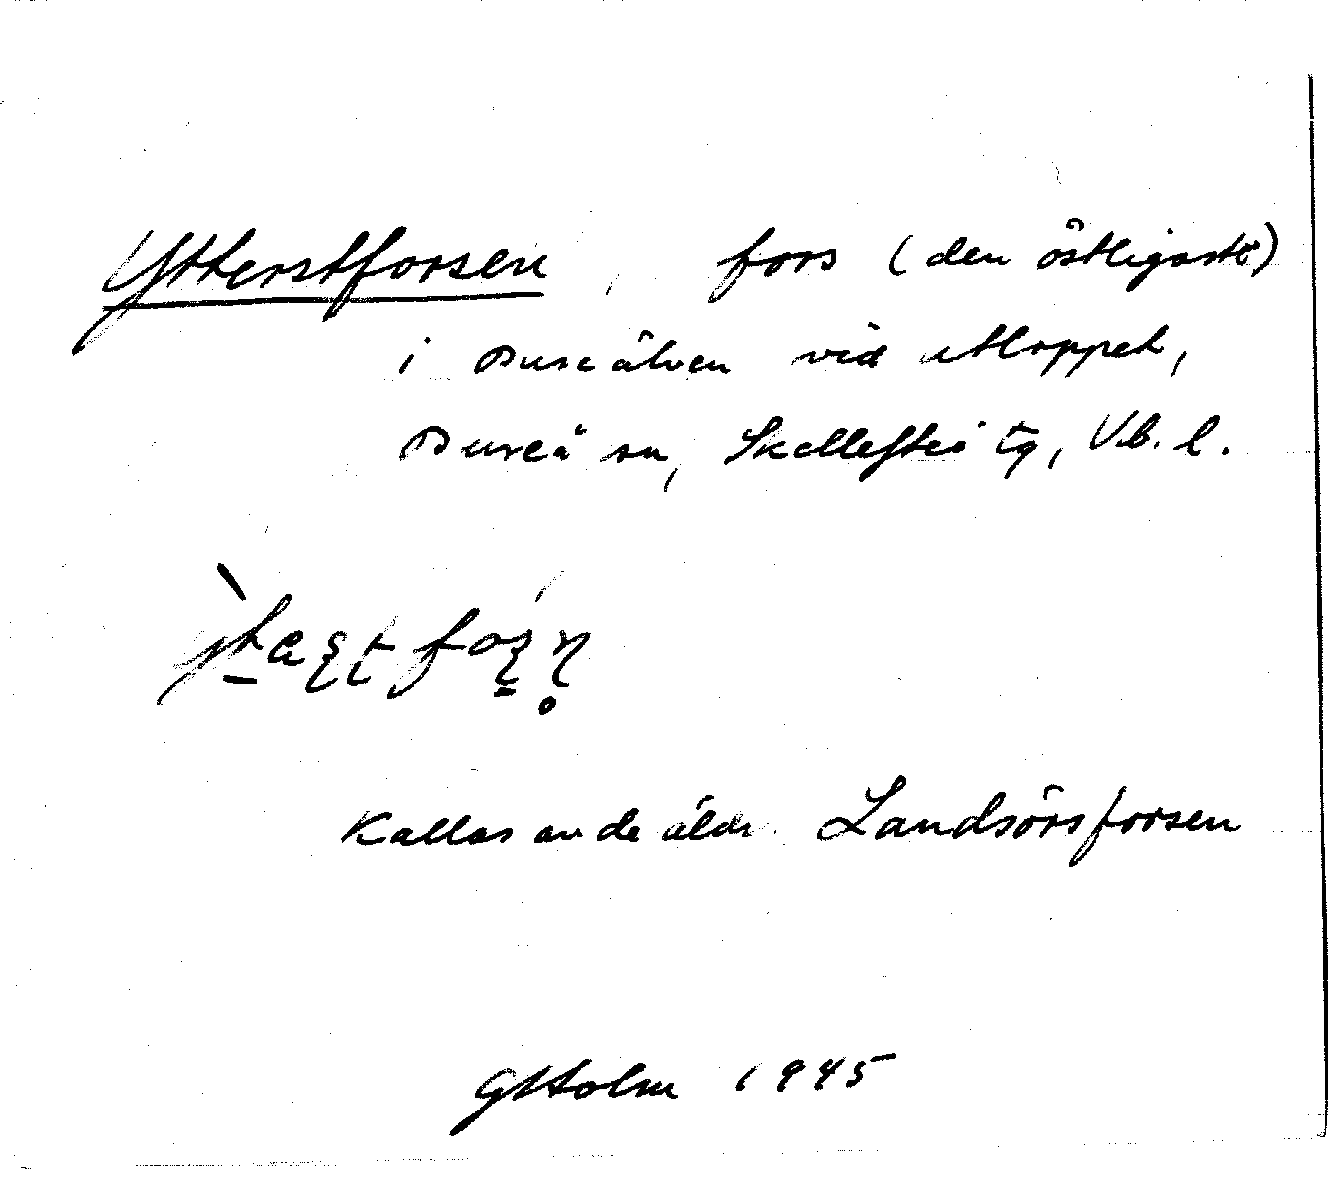 Ytterstforsen, fors (den östligaste)
i Bureälven vid utloppet,
Bureå sn, Skellefteå tg, Vb. l.
Kallas av de äldr. Landsörsforsen
G Holm 1945